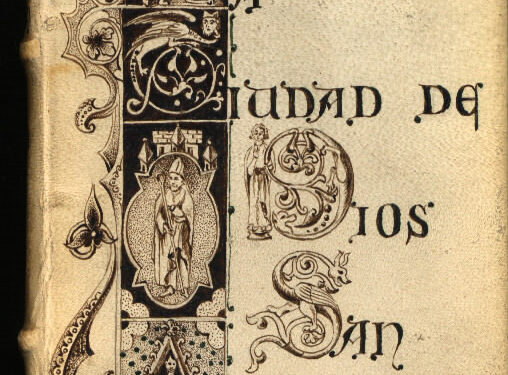 CIUDAD DE
DIOS
SAN